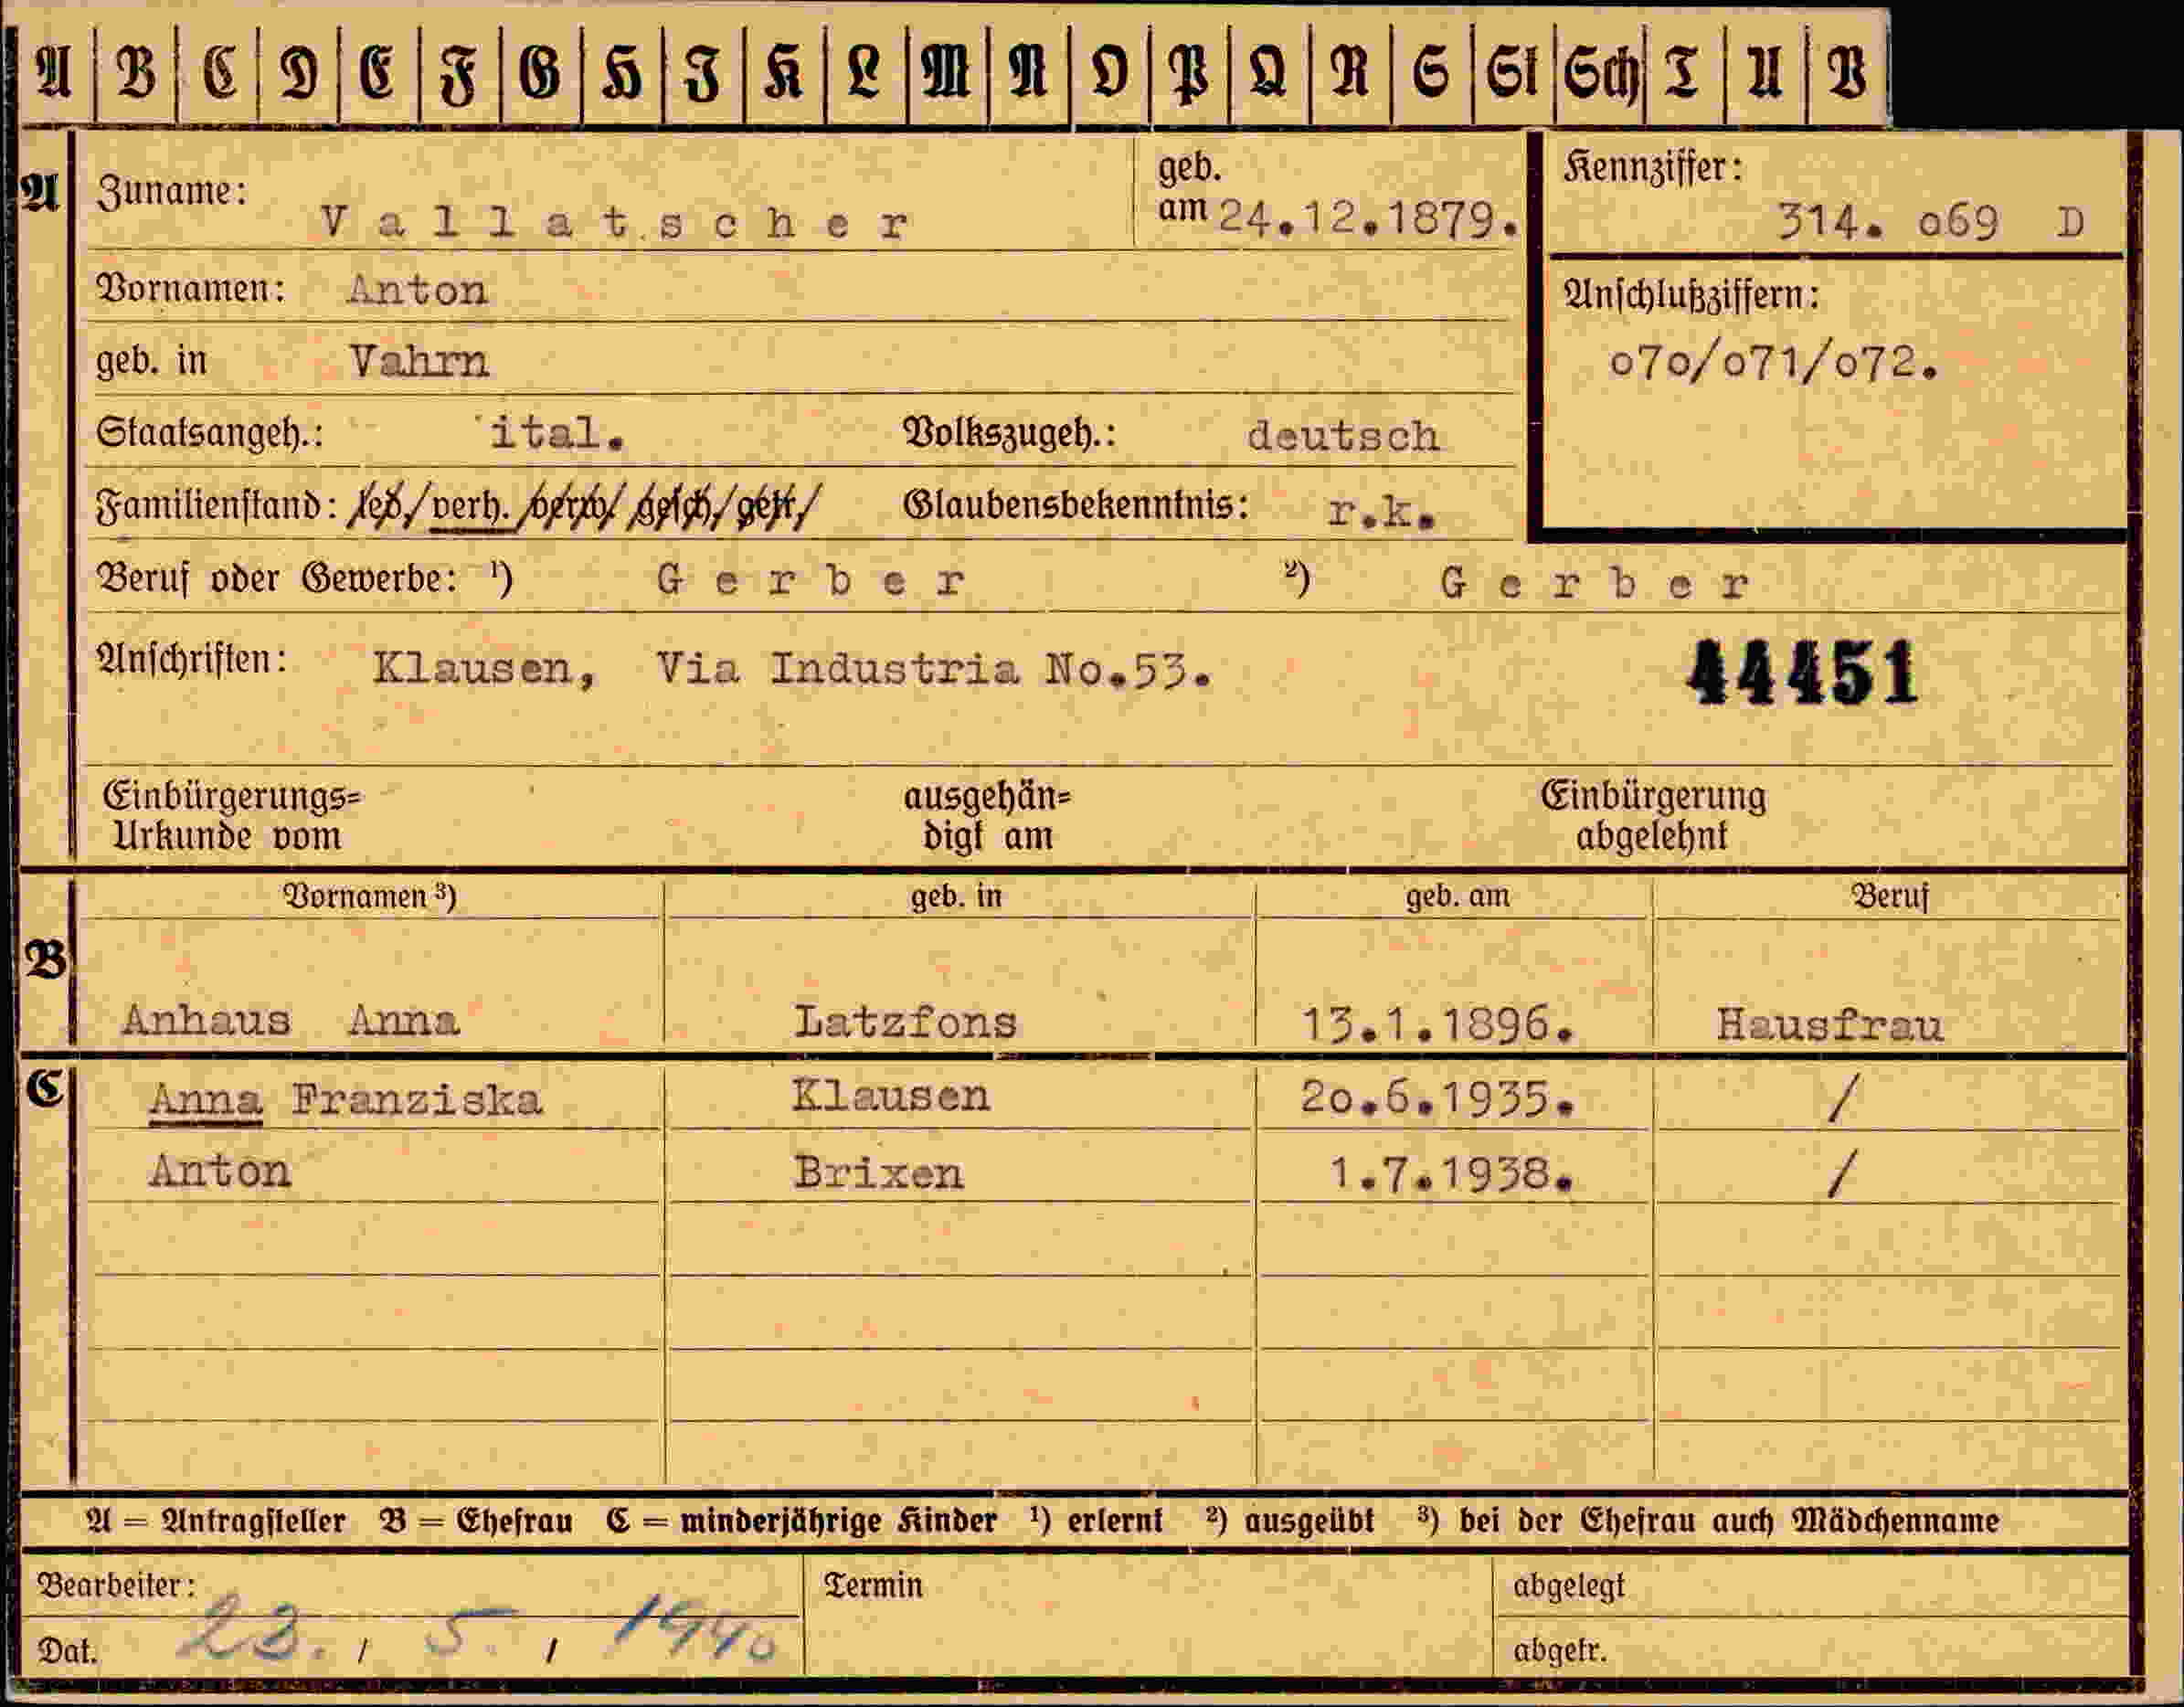 A B C D E F G H I K L M N O P Q R S St Sch T U V
A Zuname: Vallatscher geb. am 24.12.1879. Kennziffer: 314. o69 D
Vornamen: Anton Anschlußziffern:
geb. in Vahrn o7o/o71/o72.
Staatsangeh.: ital. Volkszugeh.: deutsch
Familienstand: led/verh./verw/gesch/getr/ Glaubensbekenntnis: r.k.
Beruf oder Gewerbe: ¹) Gerber ²) Gerber
Anschriften: Klausen, Via Industria No.53. 44451
Einbürgerungs= ausgehän= Einbürgerung
Urkunde vom digt am abgelehnt
B Vornamen ³) geb. in geb. am Beruf
Anhaus Anna Latzfons 13.1.1896. Hausfrau
C Anna Franziska Klausen 2o.6.1935. /
Anton Brixen 1.7.1938. /
A = Antragsteller B = Ehefrau C = minderjährige Kinder ¹) erlernt ²) ausgeübt ³) bei der Ehefrau auch Mädchenname
Bearbeiter: Termin abgelegt
Dat. 23. / 5. / 1940 abgetr.